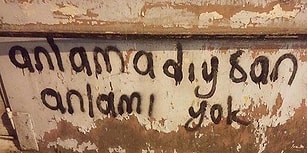 anlamadıysan
anlamı yok